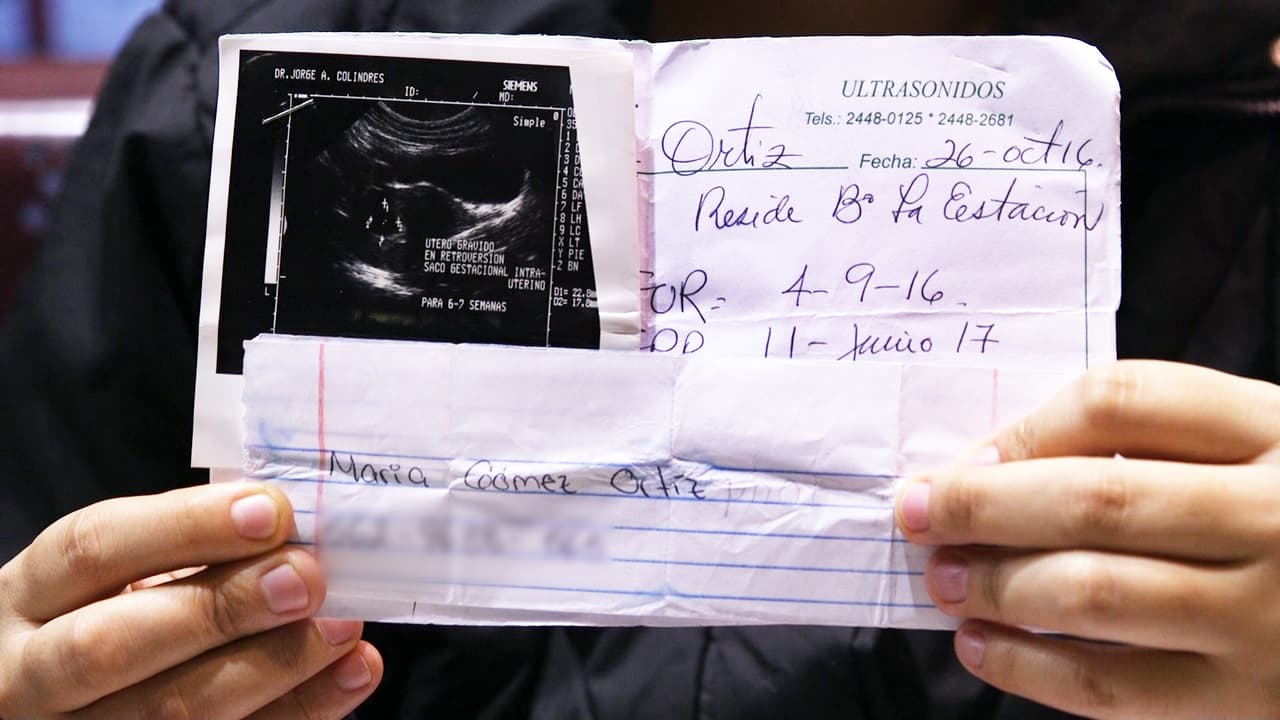 DR.JORGE A. COLINDRES
ID:
SIEMENS
MD:
Simple
UTERO GRAVIDO
EN RETROVERSION
SACO GESTACIONAL INTRA-
UTERINO
PARA 6-7 SEMANAS
D1= 22.8
D2= 17.8
ULTRASONIDOS
Tels.: 2448-0125 * 2448-2681
Ortiz Fecha: 26-oct16.
Reside Bº La Estacion
4-9-16.
11-Junio 17
Maria Goómez Ortiz